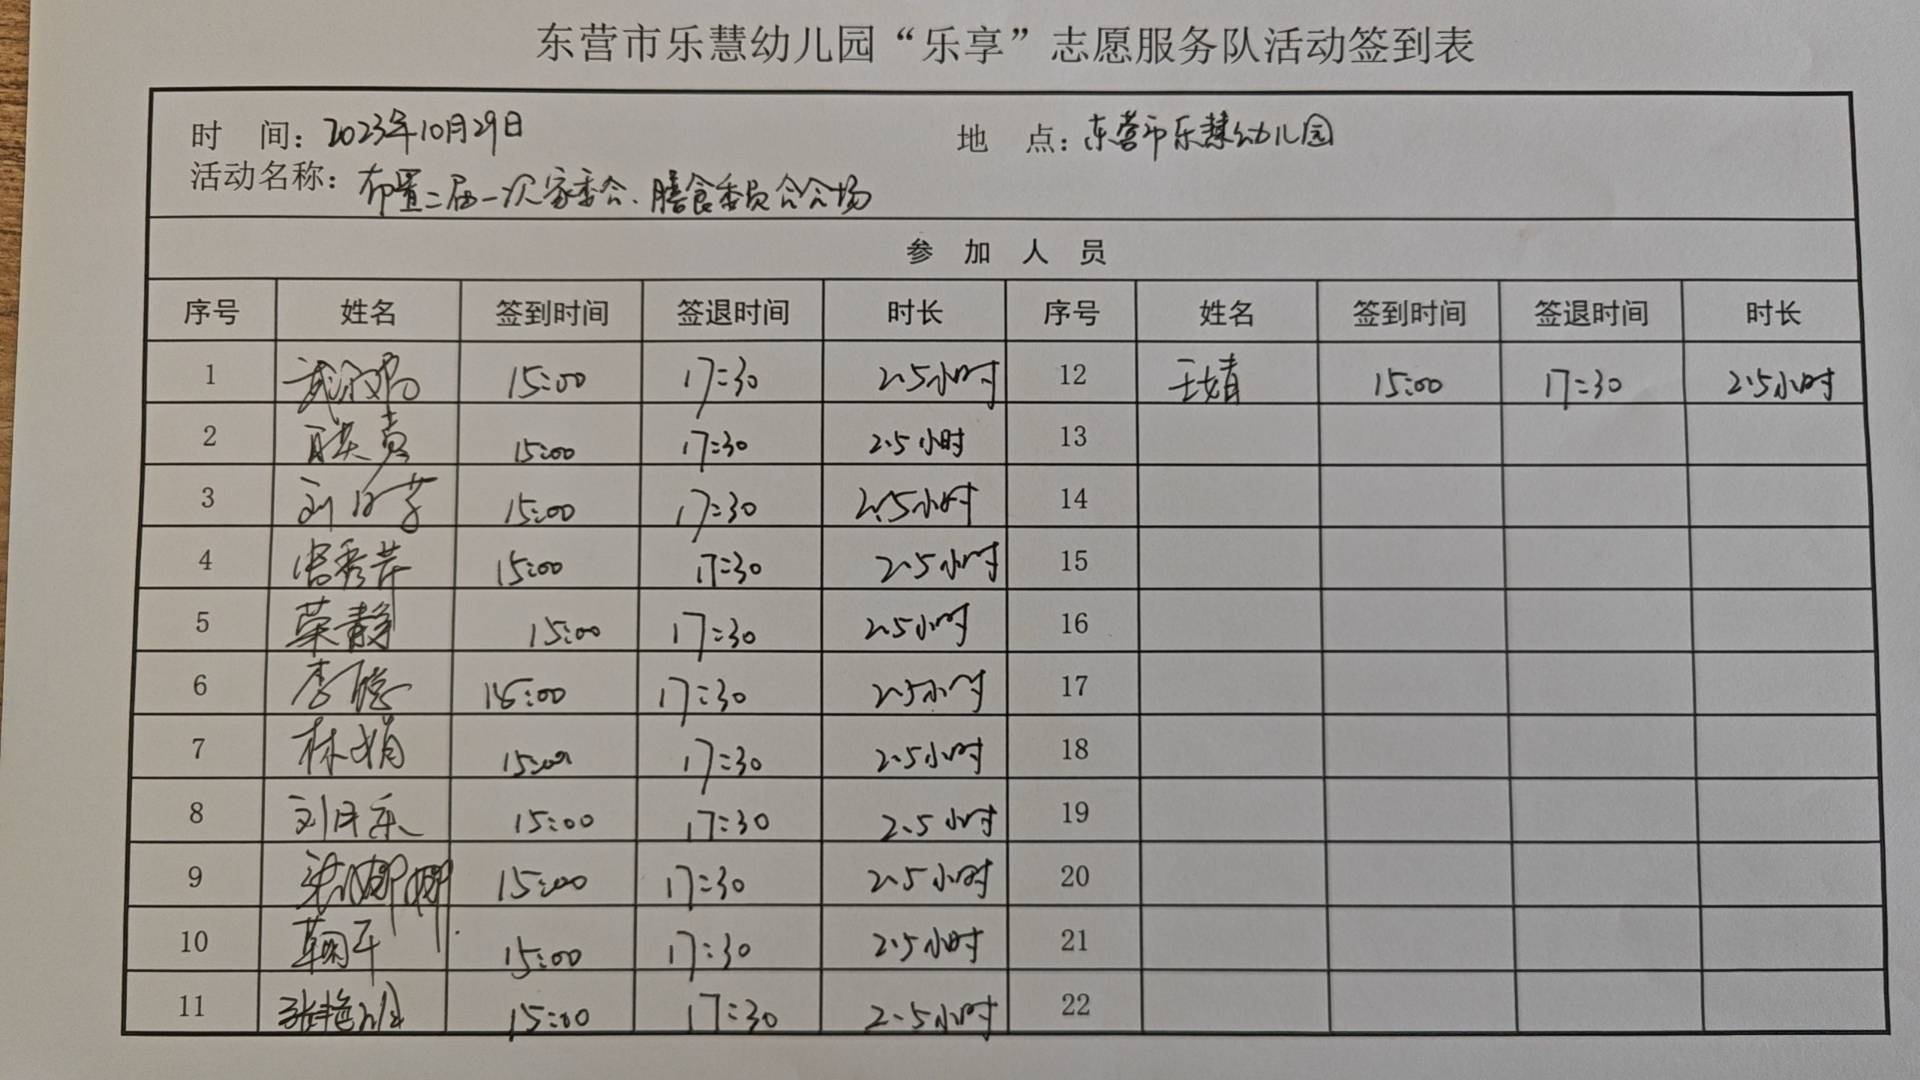 东营市乐慧幼儿园“乐享”志愿服务队活动签到表
时 间：2023年10月29日 地 点：东营市乐慧幼儿园
活动名称：布置二届一次家委会、膳食委员会会场
参 加 人 员
序号 姓名 签到时间 签退时间 时长 序号 姓名 签到时间 签退时间 时长
1 15:00 17:30 2.5小时 12 王婧 15:00 17:30 2.5小时
2 15:00 17:30 2.5小时 13
3 15:00 17:30 2.5小时 14
4 15:00 17:30 2.5小时 15
5 荣静 15:00 17:30 2.5小时 16
6 15:00 17:30 2.5小时 17
7 林娟 15:00 17:30 2.5小时 18
8 15:00 17:30 2.5小时 19
9 15:00 17:30 2.5小时 20
10 15:00 17:30 2.5小时 21
11 15:00 17:30 2.5小时 22